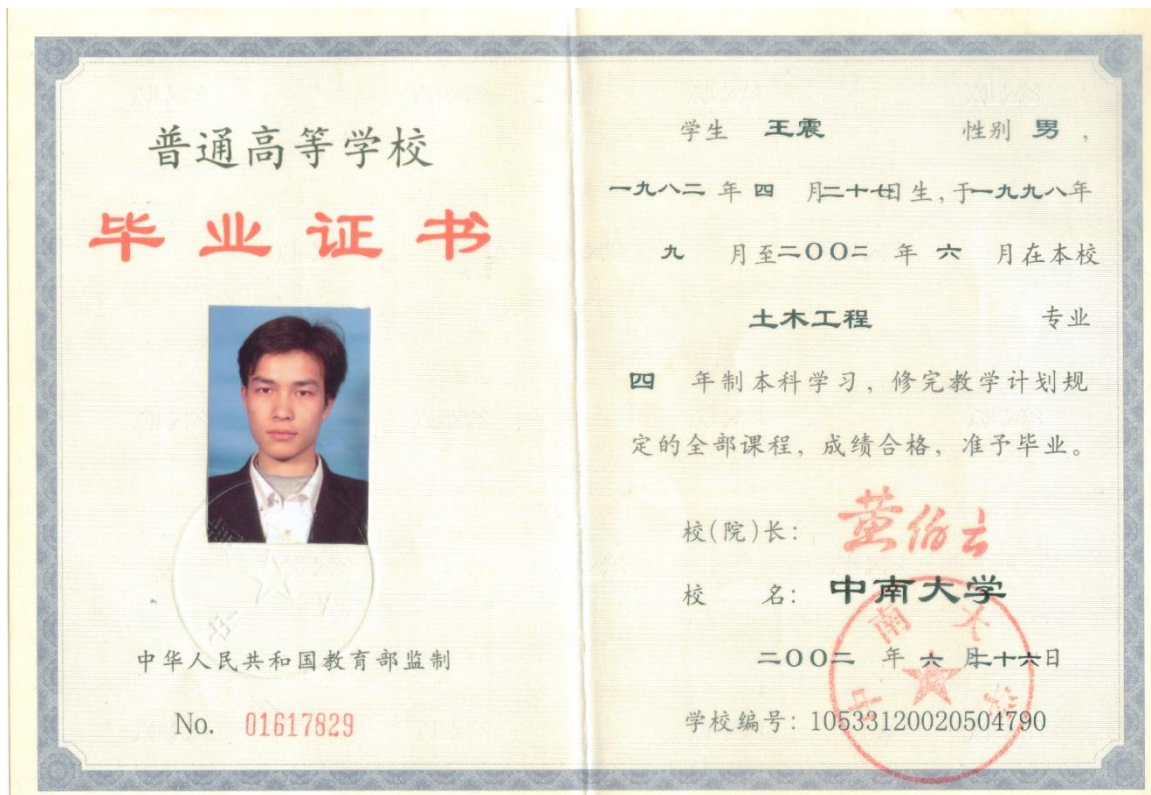 普通高等学校
毕业证书
中华人民共和国教育部监制
No. 01617829
学生 王震 性别 男，
一九八二 年 四 月二十七日生，于一九九八年
九 月至二〇〇二 年 六 月在本校
土木工程 专业
四 年制本科学习，修完教学计划规
定的全部课程，成绩合格，准予毕业。
校(院)长： 黄伯云
校 名： 中南大学
中南大学
二〇〇二 年 六 月二十六日
学校编号：10533120020504790